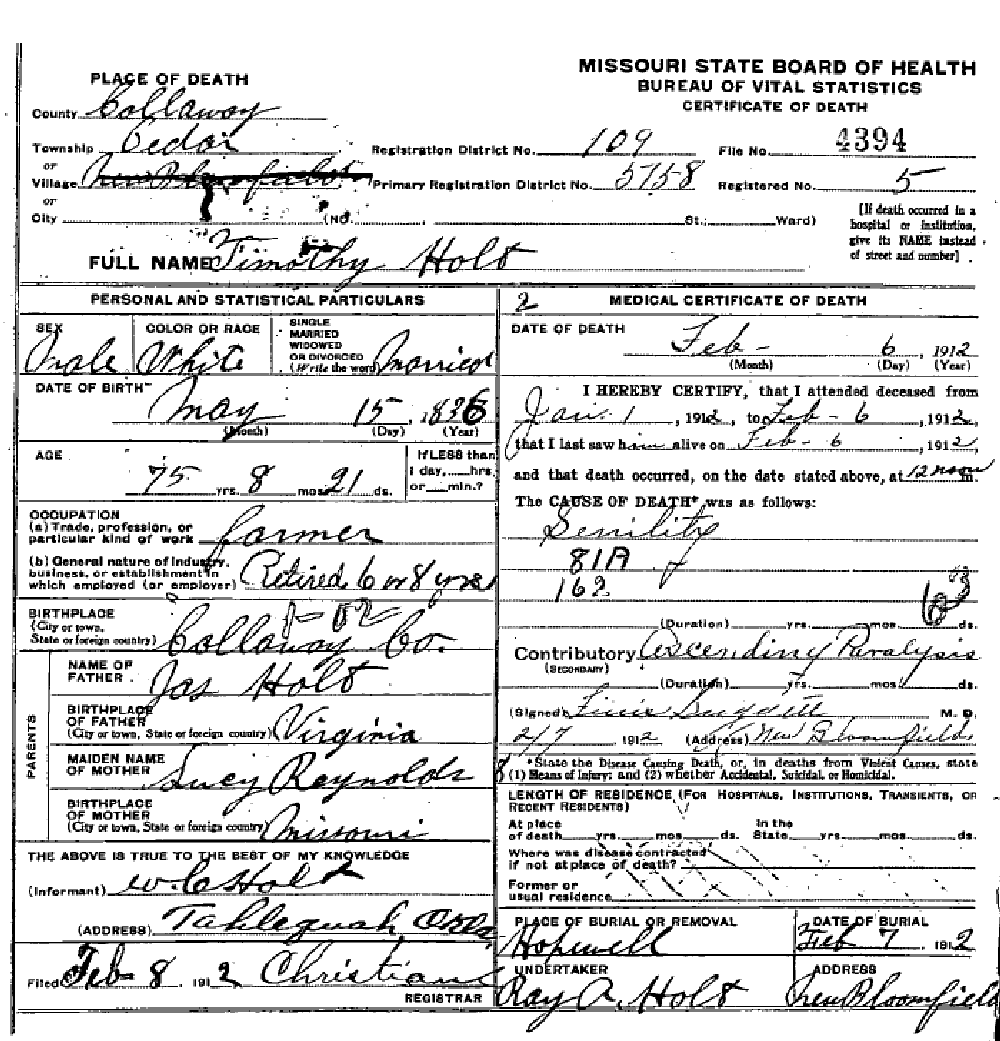 MISSOURI STATE BOARD OF HEALTH
BUREAU OF VITAL STATISTICS
CERTIFICATE OF DEATH
PLACE OF DEATH
County Callaway
Township Cedar
Registration District No. 109
File No. 4394
or
Village New Bloomfield
Primary Registration District No. 5758
Registered No. 5
or
City (No. St.; Ward)
[If death occurred in a
hospital or institution,
give its NAME instead
of street and number].
FULL NAME Timothy Holt
PERSONAL AND STATISTICAL PARTICULARS
SEX
Male
COLOR OR RACE
White
SINGLE
MARRIED
WIDOWED
OR DIVORCED
(Write the word) Married
DATE OF BIRTH
May 15, 1836
(Month) (Day) (Year)
AGE
75 yrs. 8 mos. 21 ds.
If LESS than
1 day,....hrs.
or....min.?
OCCUPATION
(a) Trade, profession, or
particular kind of work farmer
(b) General nature of industry,
business, or establishment in
which employed (or employer) Retired 6 or 8 yrs
BIRTHPLACE
(City or town,
State or foreign country) Callaway Co.
PARENTS
NAME OF
FATHER Jas Holt
BIRTHPLACE
OF FATHER
(City or town, State or foreign country) Virginia
MAIDEN NAME
OF MOTHER Lucy Reynolds
BIRTHPLACE
OF MOTHER
(City or town, State or foreign country) Missouri
THE ABOVE IS TRUE TO THE BEST OF MY KNOWLEDGE
(Informant) W. C. Holt
(ADDRESS) Tahlequah Okla
Filed Feb 8 1912 Christian
REGISTRAR
2 MEDICAL CERTIFICATE OF DEATH
DATE OF DEATH
Feb - 6, 1912
(Month) (Day) (Year)
I HEREBY CERTIFY, that I attended deceased from
Jan. 1, 1912, to Feb - 6, 1912,
that I last saw him alive on Feb - 6, 1912,
and that death occurred, on the date stated above, at 12 noon m.
The CAUSE OF DEATH* was as follows:
Senility
81A
162
(Duration) yrs. mos. ds.
Contributory Ascending Paralysis
(SECONDARY)
(Duration) yrs. mos. ds.
(Signed) M. D.
2/7 1912 (Address) New Bloomfield
*State the Disease Causing Death, or, in deaths from Violent Causes, state
(1) Means of Injury; and (2) whether Accidental, Suicidal, or Homicidal.
LENGTH OF RESIDENCE (FOR HOSPITALS, INSTITUTIONS, TRANSIENTS, OR
RECENT RESIDENTS)
At place
of death yrs. mos. ds.
In the
State yrs. mos. ds.
Where was disease contracted
if not at place of death?
Former or
usual residence
PLACE OF BURIAL OR REMOVAL
Hopewell
DATE OF BURIAL
Feb 7, 1912
UNDERTAKER
Ray A. Holt
ADDRESS
New Bloomfield